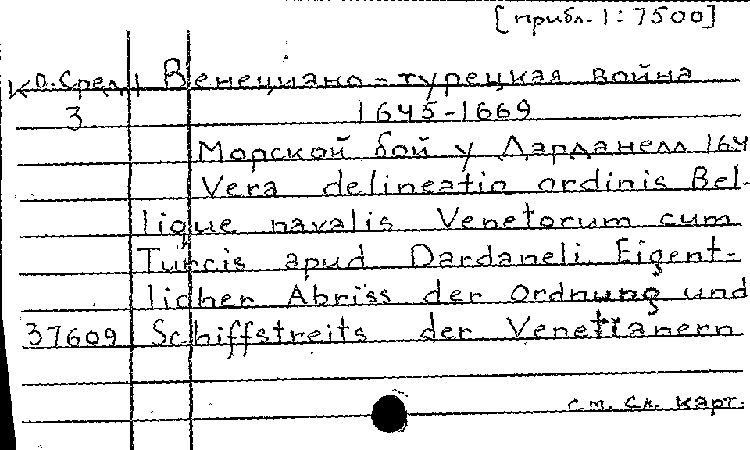 [прибл. 1:7500]
К П.Сред. Венециано-турецкая война
3 1645-1669
Морской бой у Дарданелл 164
Vera delineatio ordinis Bel-
lique navalis Venetorum cum
Turcis apud Dardaneli. Eigent-
licher Abriss der Ordnung und
37609 Schiffstreits der Venetianern
см. сл. карт.